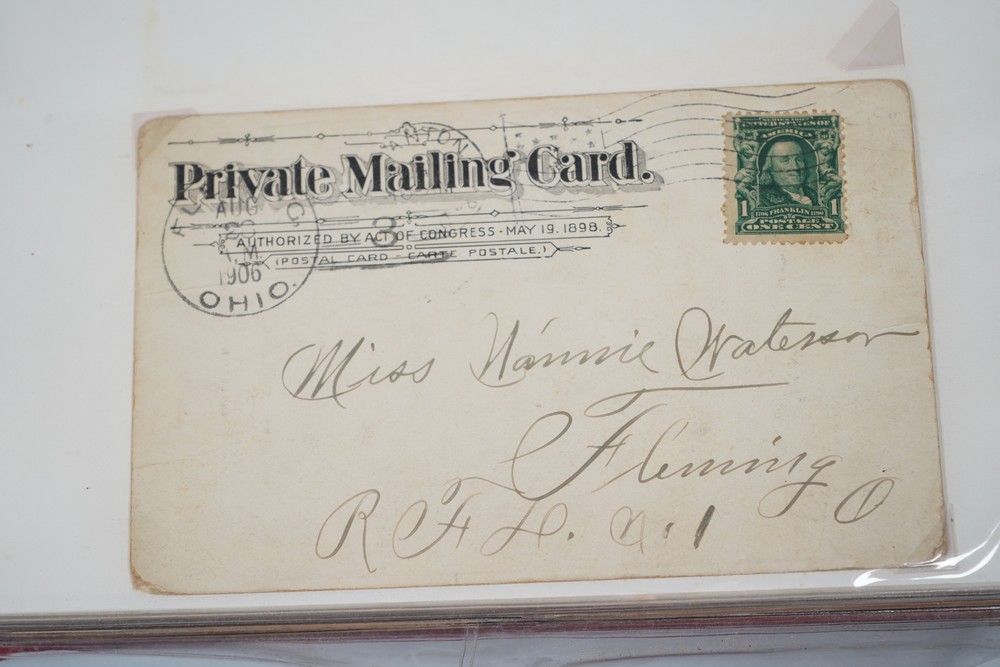 Private Mailing Card.
AUTHORIZED BY ACT OF CONGRESS - MAY 19. 1898.
(POSTAL CARD - CARTE POSTALE.)
AUG
M.
1906
OHIO.
UNITED STATES OF
AMERICA
1 1706 FRANKLIN 1790 1
POSTAGE
ONE CENT
Miss Nannie Waterson
Fleming
R F D. N. 1 O